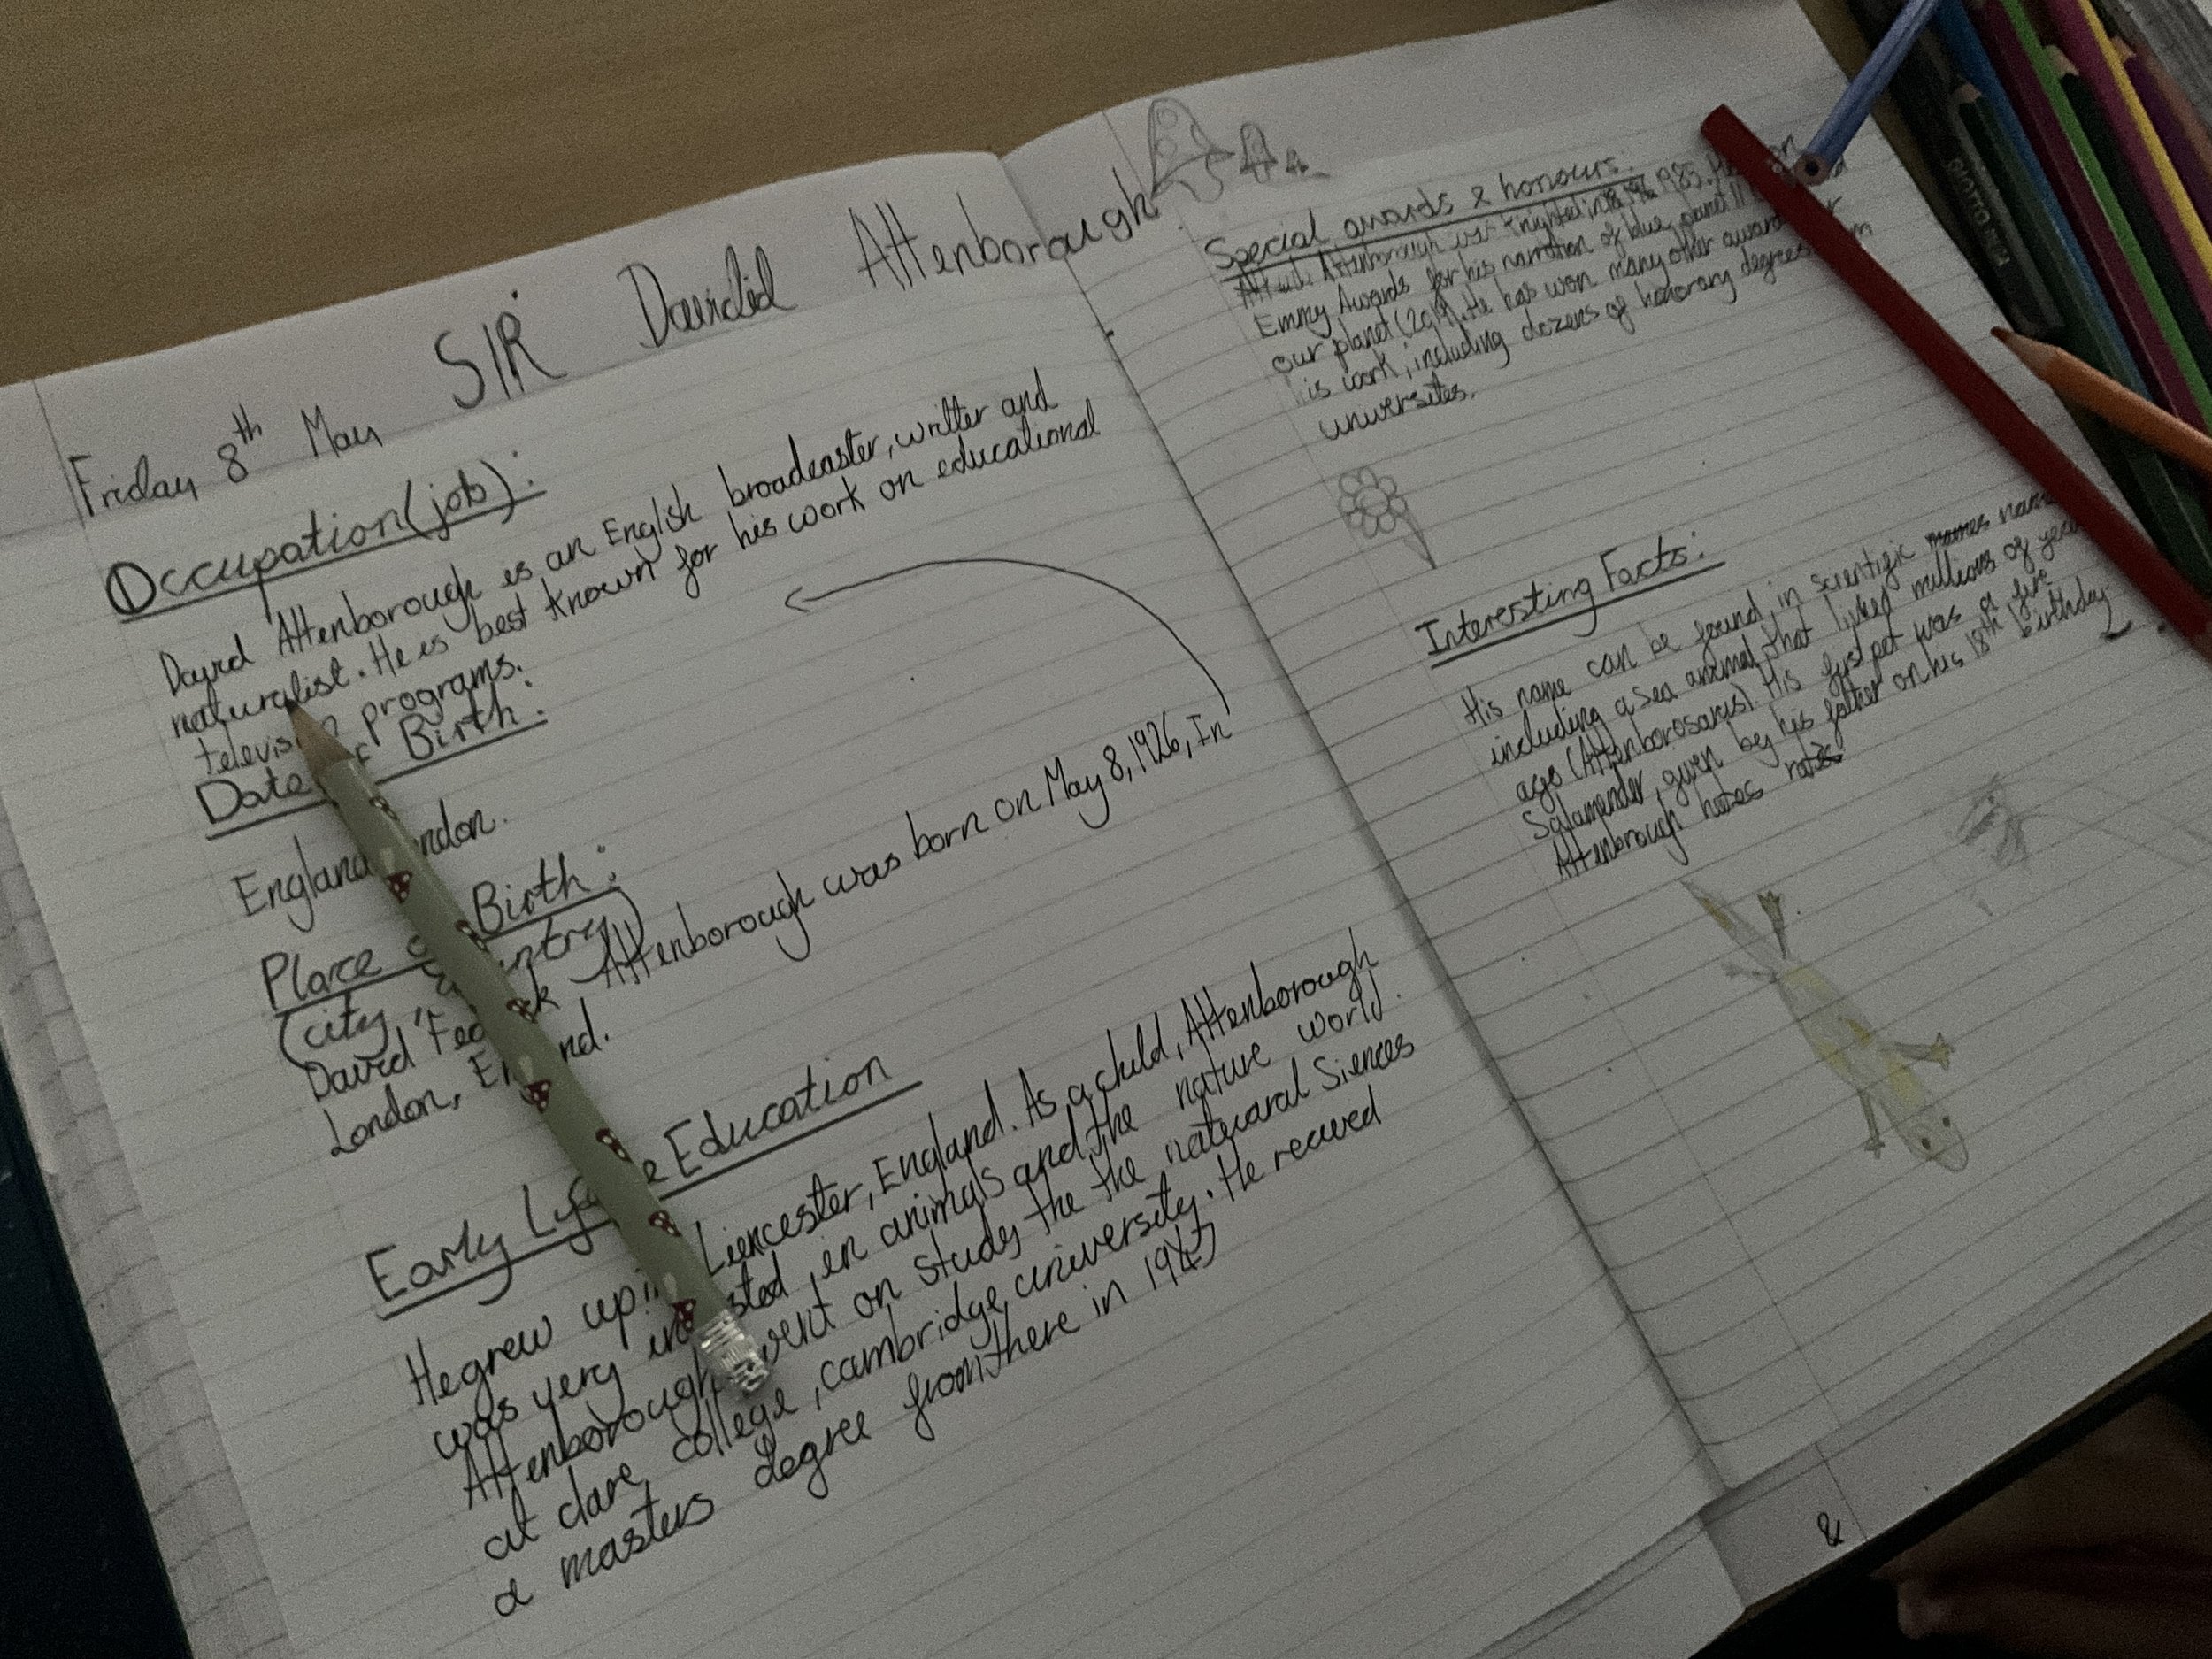 Friday 8th May
SIR David Attenborough
Occupation(job):
David Attenborough is an English broadcaster, writter and
naturalist. He is best known for his work on educational
programs.
Date Birth:
England
Place Birth:
(city,
David Attenborough was born on May 8, 1926, In
London,
Early Education
He grew up Liencester, England. As a child, Attenborough
was very in animals and the nature world.
Attenborough went on study the the natuaral Siences
at clare college, cambridge, university. He recived
a masters degree from there in 1947
Special awards & honours:
Attenborough was knighted in 1985.
Emmy Awards for his narration of blue planet II
our planet (2019). He has won many other
is work, including dozens of honorary degrees
universites.
Interesting Facts:
His name can be found in scientific
including a sea animal that lived millions of
ago (Attenborosarus). His first pet was a fire
Salamender, given by his father on his birthday.
Attenbrough hates rats
&
PIOTTO